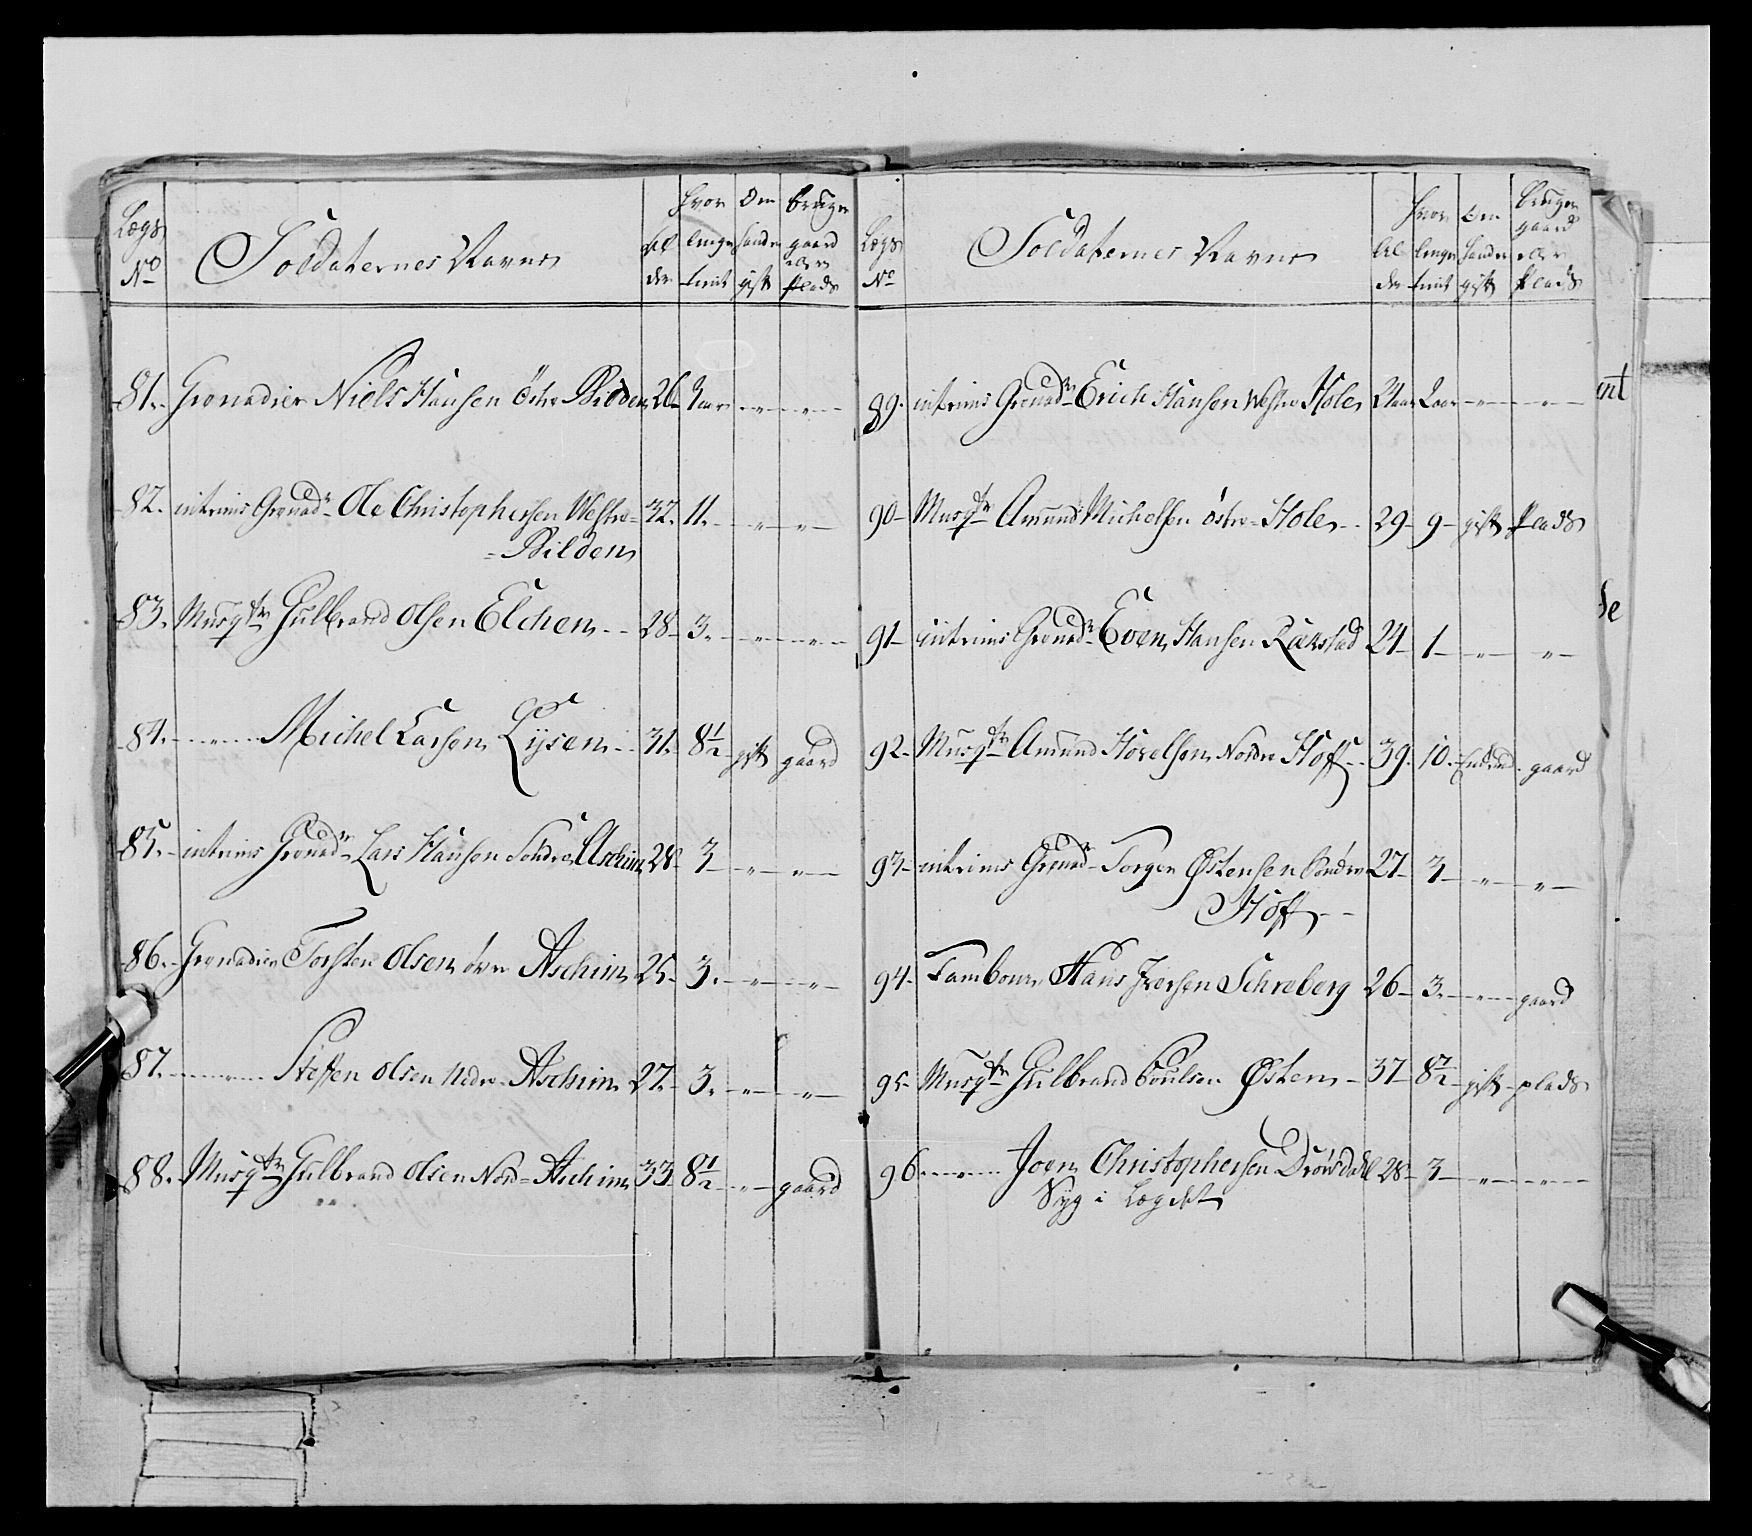 Lægs No | Soldaternes Navne | Al der | Hvor længe tient | Om handr gift | bruger gaard eller Plads
81. Grenadier Niels Hansen östre Bilden 26 3 aar " "
82. intrims Grenadr Ole Christophersen Westre 32. 11. " "
= Bilden
83. Musqtr Gulbrand Olsen Elchen 28 3. " "
84. " Michel Larsen Lÿsen 31. 8 1/2 gift gaard
85. intrims Grenadr Lars Hansen Söndre Aschim 28 3 " "
86. Grenadier Torsten Olsen övre Aschim 25 3. " "
87. " Steffen Olsen Nedre Aschim 27 3. " "
88. Musqtr Gulbrand Olsen Nord= Aschim 33 8 1/2 " gaard
Lægs No | Soldaternes Navne | Al der | Hvor længe tient | Om handr gift | bruger gaard eller Plads
89. intrims Grenadr Erich Hansen Westre Hole 21 aar 2 aar " "
90 Musqtr Amund Michelsen östre Hole 29 9 gift Plads
91 intrims Grenadr Even Hansen Rækstad 24 1 " "
92 Musqtr Amund Hovelsen Nordre Hoff 39. 10. gaard
93 intrims Grenadr Torger Østensen Söndre 27 3 " "
Hoff
94 Tambour Hans Iversen Schreberg 26 3. " gaard
95 Musqtr Gulbrand Poulsen Østen 37 8 1/2 gift plads
96. " Joen Christophersen Drövsdahl 28 3 " "
Syg i Lægdet
ent
de